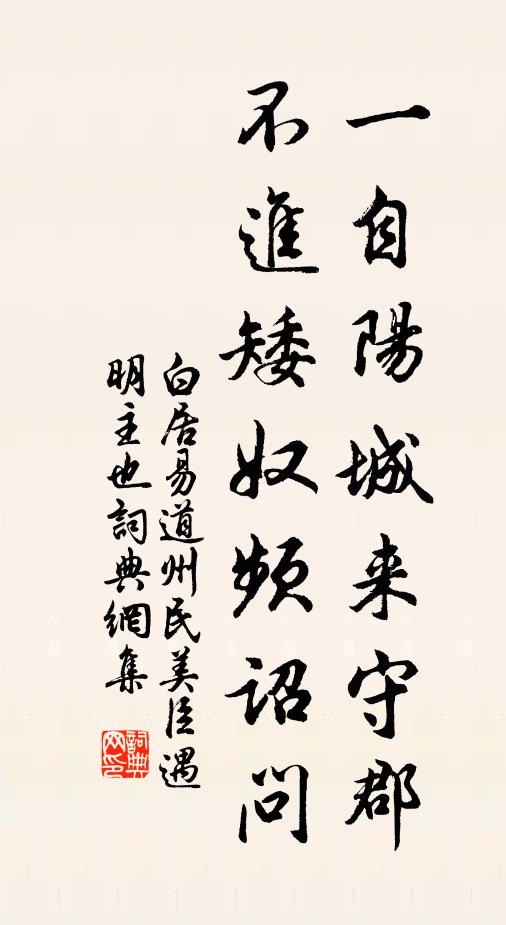 一自陽城来守郡
不進矮奴頻詔問
白居易道州民美臣遇
明主也詞典網集
詞典
网印